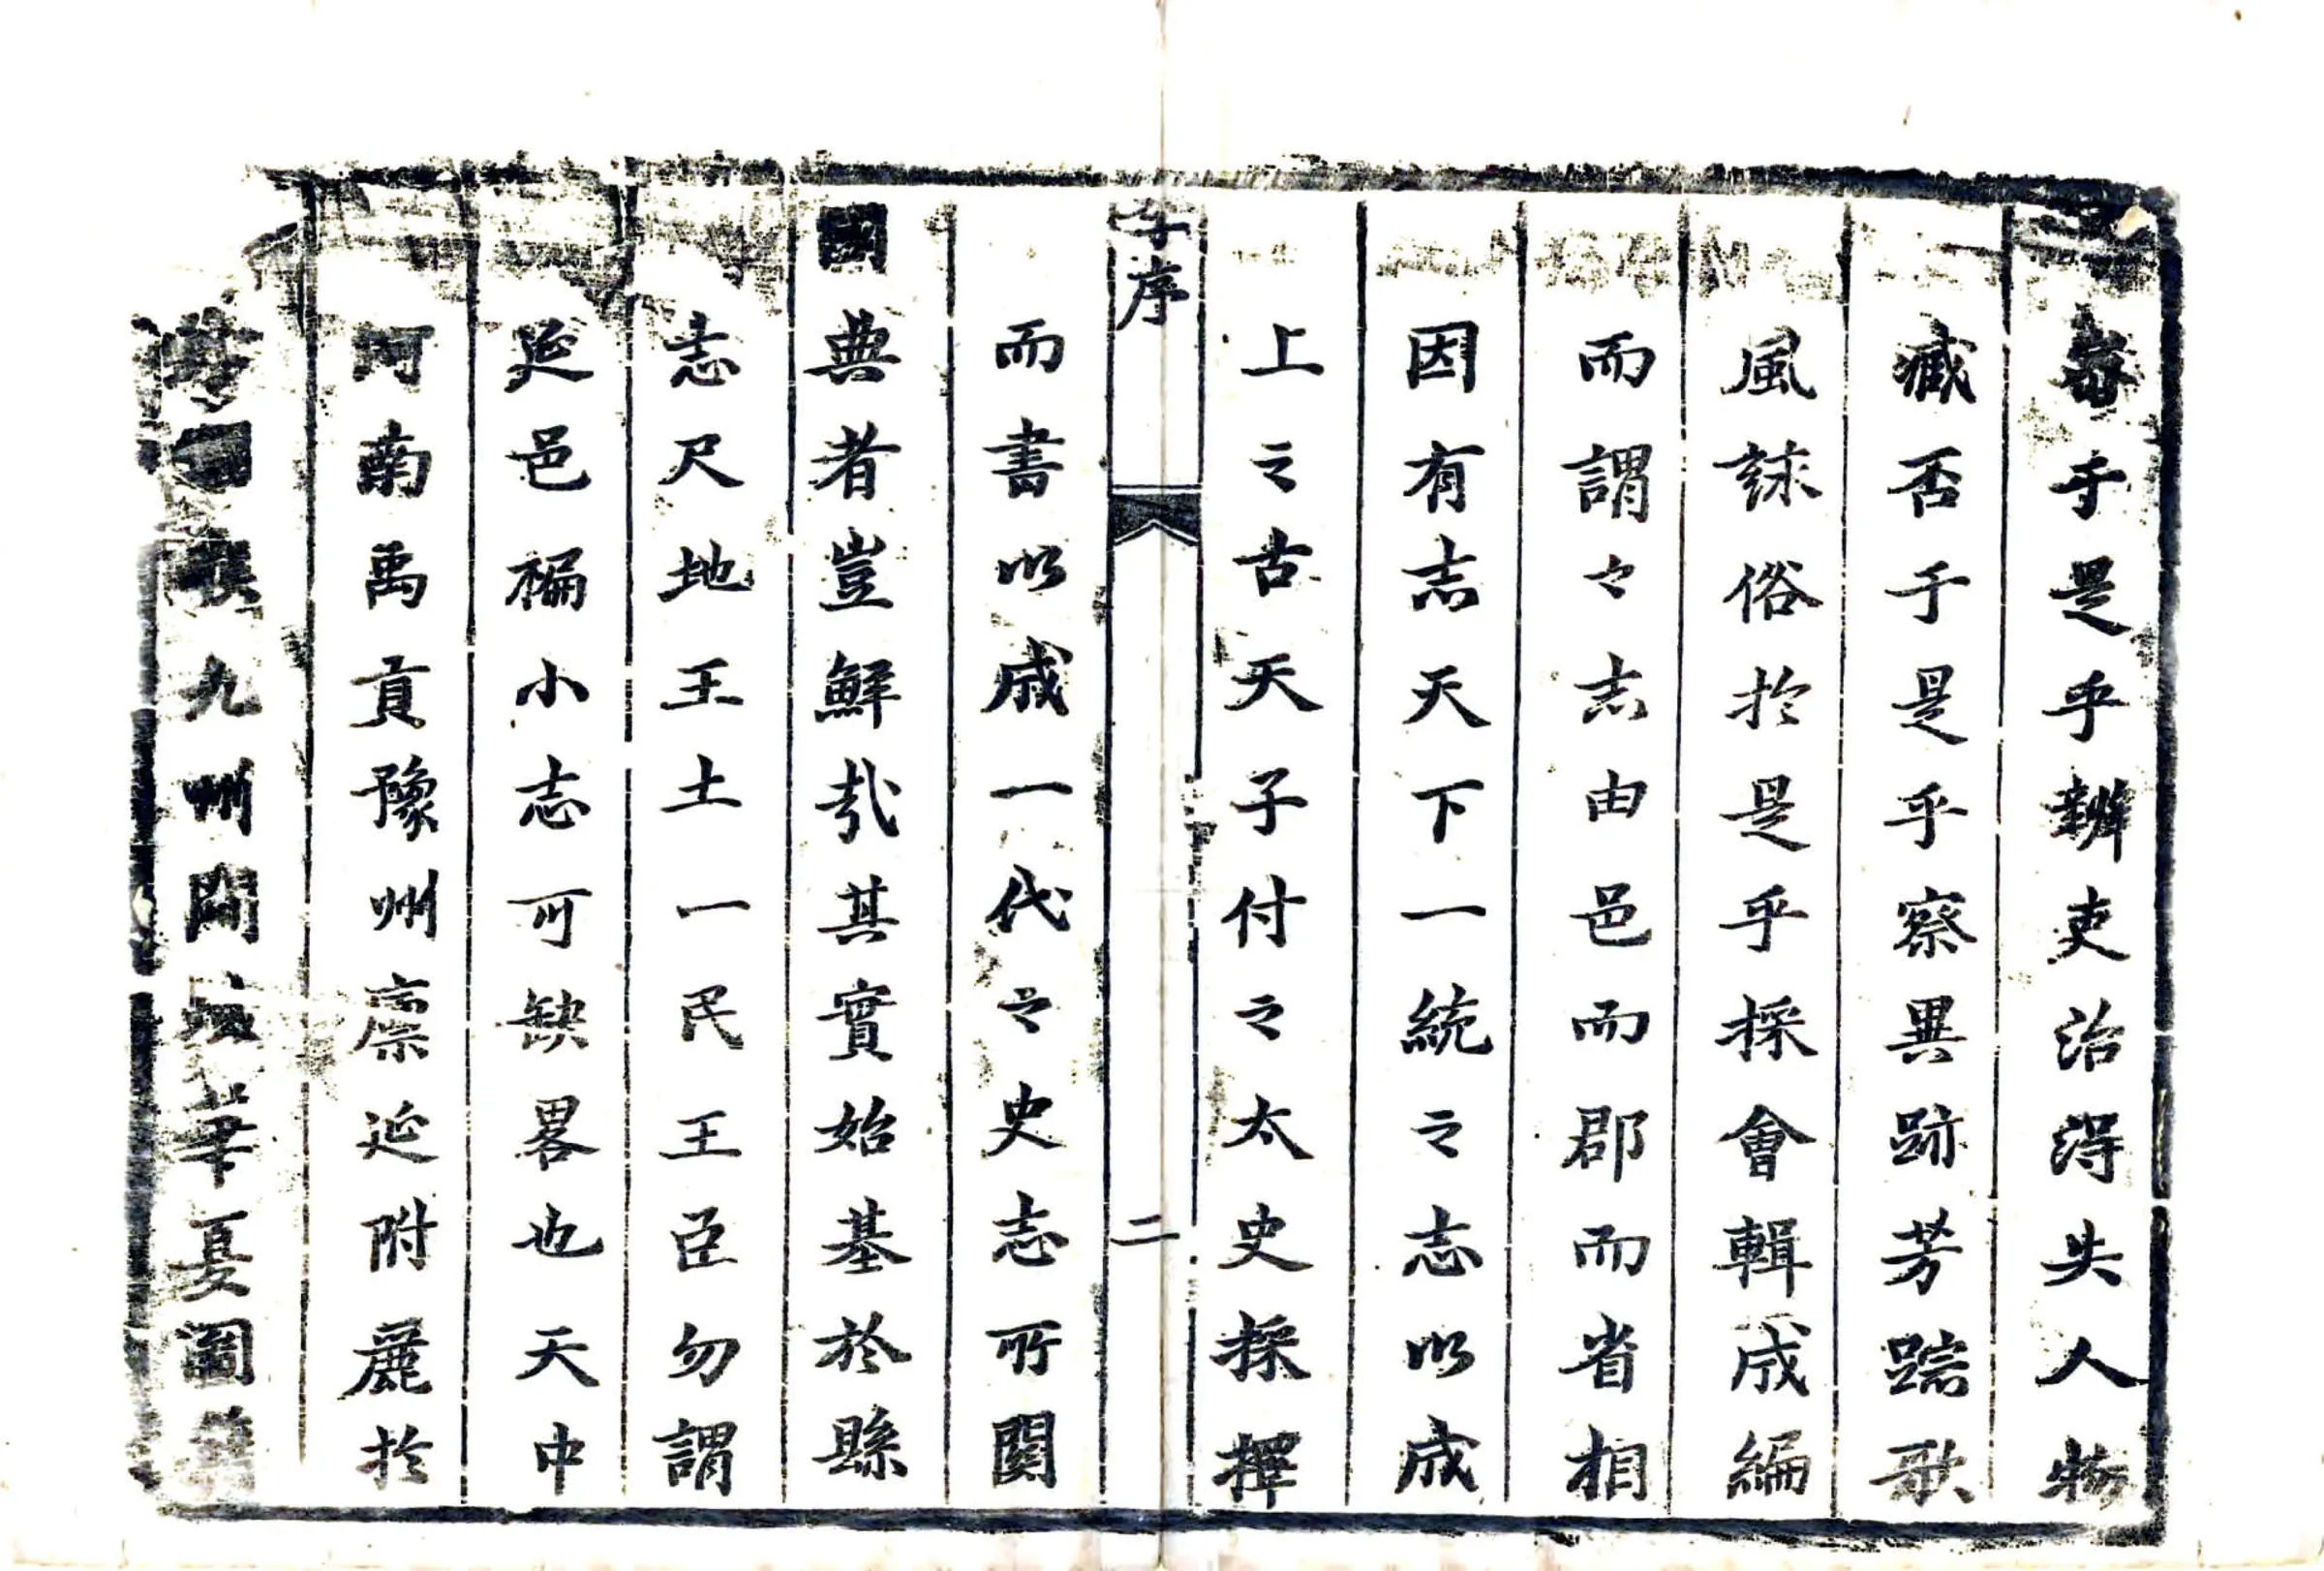 于是乎辨吏治淂失人物
臧否于是乎察異跡芳踪歌
風誄俗於是乎採會輯成編
而謂之志由邑而郡而省相
因有志天下一統之志以成
上之古天子付之太史採擇
序
二
而書以成一代之史志所関
國典者豈鮮哉其實始基於縣
志尺地王土一民王臣勿謂
延邑褊小志可缺畧也天中
河南禹貢豫州禀延附麗於
九州開華夏圖籍